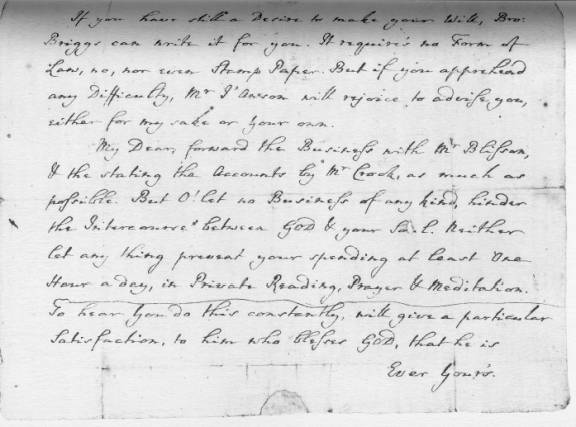 If you have still a Desire to make your Will, Bro:
Briggs can write it for you. It requires no Form of
Law, no, nor even Stamp Paper. But if you apprehend
any Difficulty, Mr I'Anson will rejoice to advise you,
either for my sake or your own.
My Dear, forward the Business with Mr Blisson,
& the stating the Accounts by Mr Crook, as much as
possible. But O! let no Business of any kind, hinder
the Intercourse between GOD & your Soul. Neither
let any thing prevent your spending at least One
Hour a day, in Private Reading, Prayer & Meditation.
To hear You do this constantly, will give a particular
Satisfaction, to him who blesses GOD, that he is
Ever Yours.